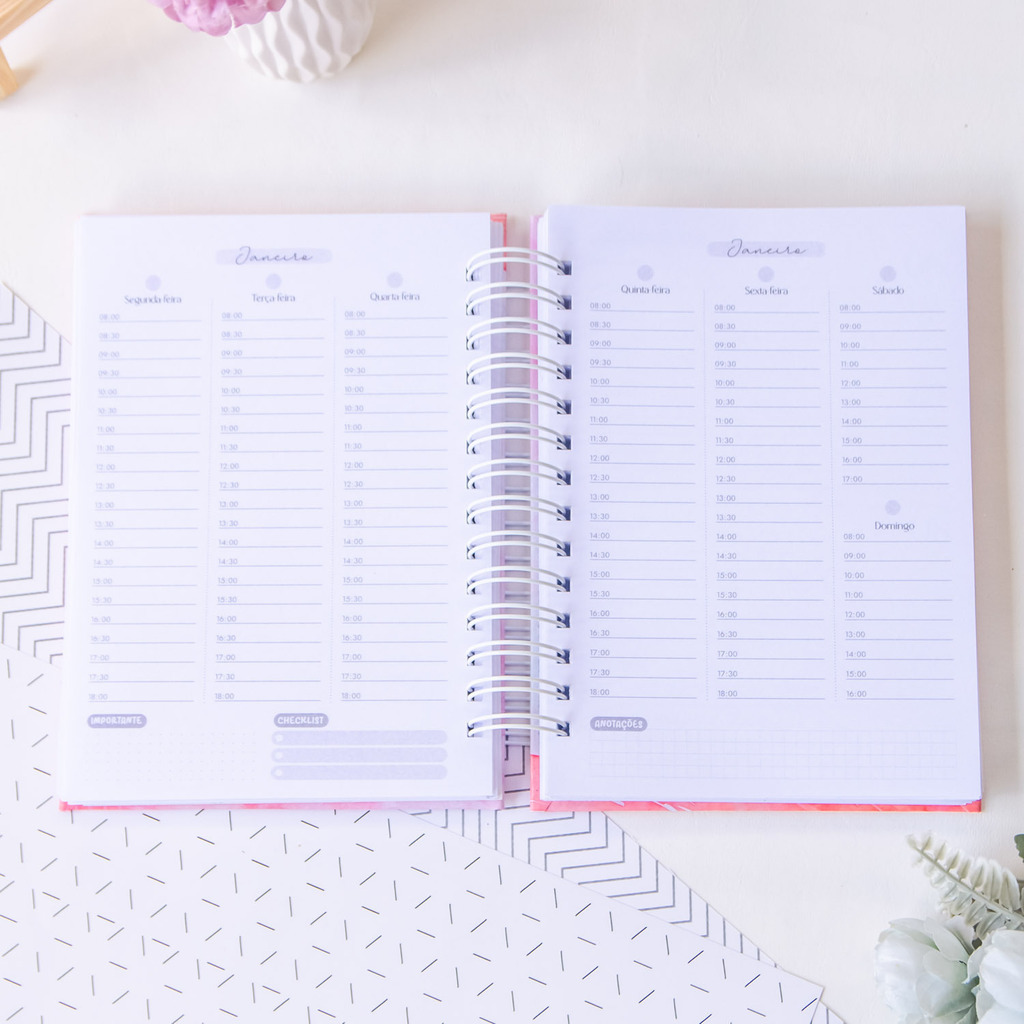 Janeiro
Segunda feira
08:00
08:30
09:00
09:30
10:00
10:30
11:00
11:30
12:00
12:30
13:00
13:30
14:00
14:30
15:00
15:30
16:00
16:30
17:00
17:30
18:00
Terça feira
08:00
08:30
09:00
09:30
10:00
10:30
11:00
11:30
12:00
12:30
13:00
13:30
14:00
14:30
15:00
15:30
16:00
16:30
17:00
17:30
18:00
Quarta feira
08:00
08:30
09:00
09:30
10:00
10:30
11:00
11:30
12:00
12:30
13:00
13:30
14:00
14:30
15:00
15:30
16:00
16:30
17:00
17:30
18:00
IMPORTANTE
CHECKLIST
Janeiro
Quinta feira
08:00
08:30
09:00
09:30
10:00
10:30
11:00
11:30
12:00
12:30
13:00
13:30
14:00
14:30
15:00
15:30
16:00
16:30
17:00
17:30
18:00
Sexta feira
08:00
08:30
09:00
09:30
10:00
10:30
11:00
11:30
12:00
12:30
13:00
13:30
14:00
14:30
15:00
15:30
16:00
16:30
17:00
17:30
18:00
Sábado
08:00
09:00
10:00
11:00
12:00
13:00
14:00
15:00
16:00
17:00
Domingo
08:00
09:00
10:00
11:00
12:00
13:00
14:00
15:00
16:00
ANOTAÇÕES